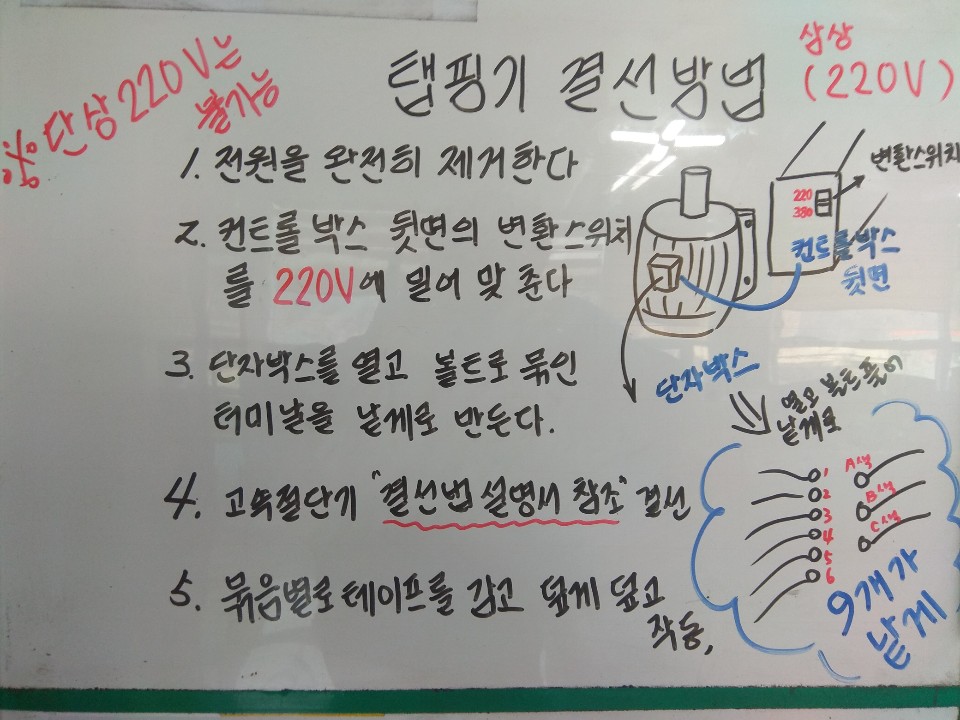 ※ 단상 220V는
불가능
탭핑기 결선방법
삼상
(220V)
1. 전원을 완전히 제거한다
2. 컨트롤 박스 뒷면의 변환스위치
를 220V에 밀어 맞춘다
3. 단자박스를 열고 볼트로 묶인
터미날을 낱게로 만든다.
4. 고속절단기 "결선법 설명서 참조" 결선
5. 묶음별로 테이프를 감고 덮게 덮고
작동,
220
380
변환스위치
컨트롤박스
뒷면
단자박스
열고 볼트풀어
낱게로
1
2
3
4
5
6
A색
B색
C색
9개가
낱게